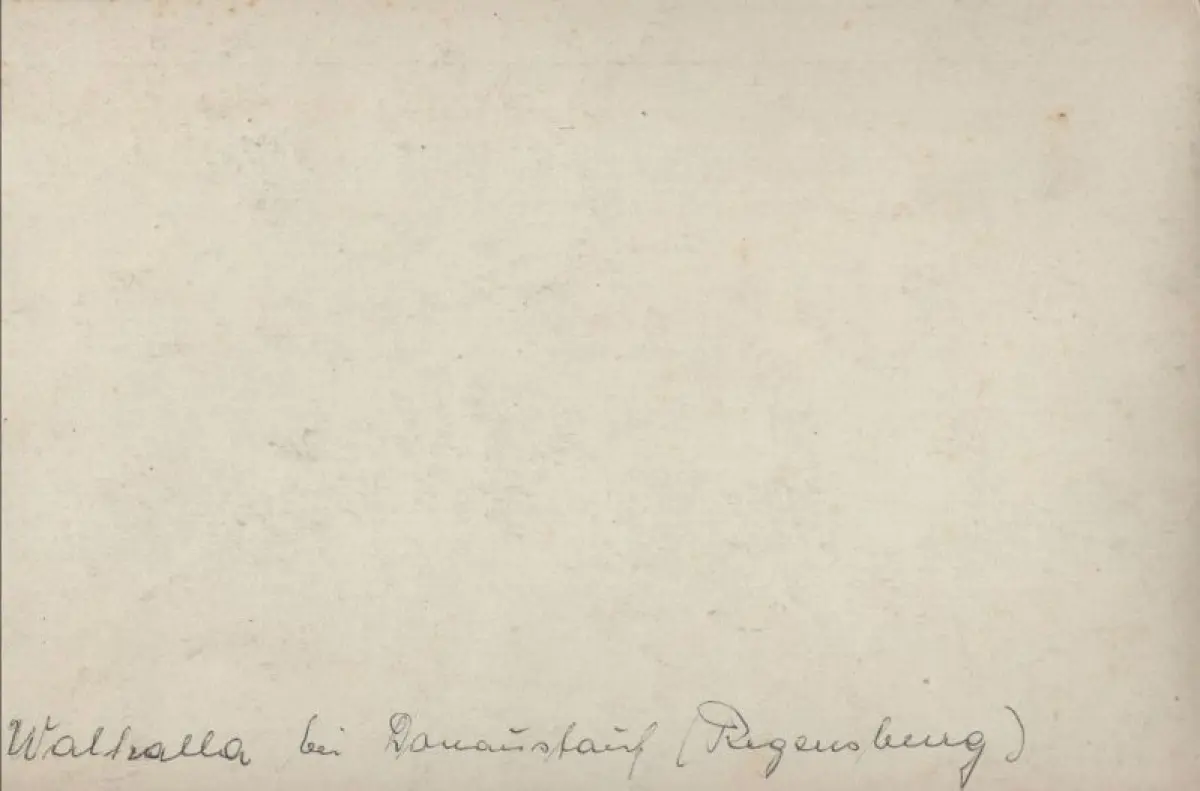 Walhalla bei Donaustauf (Regensburg)